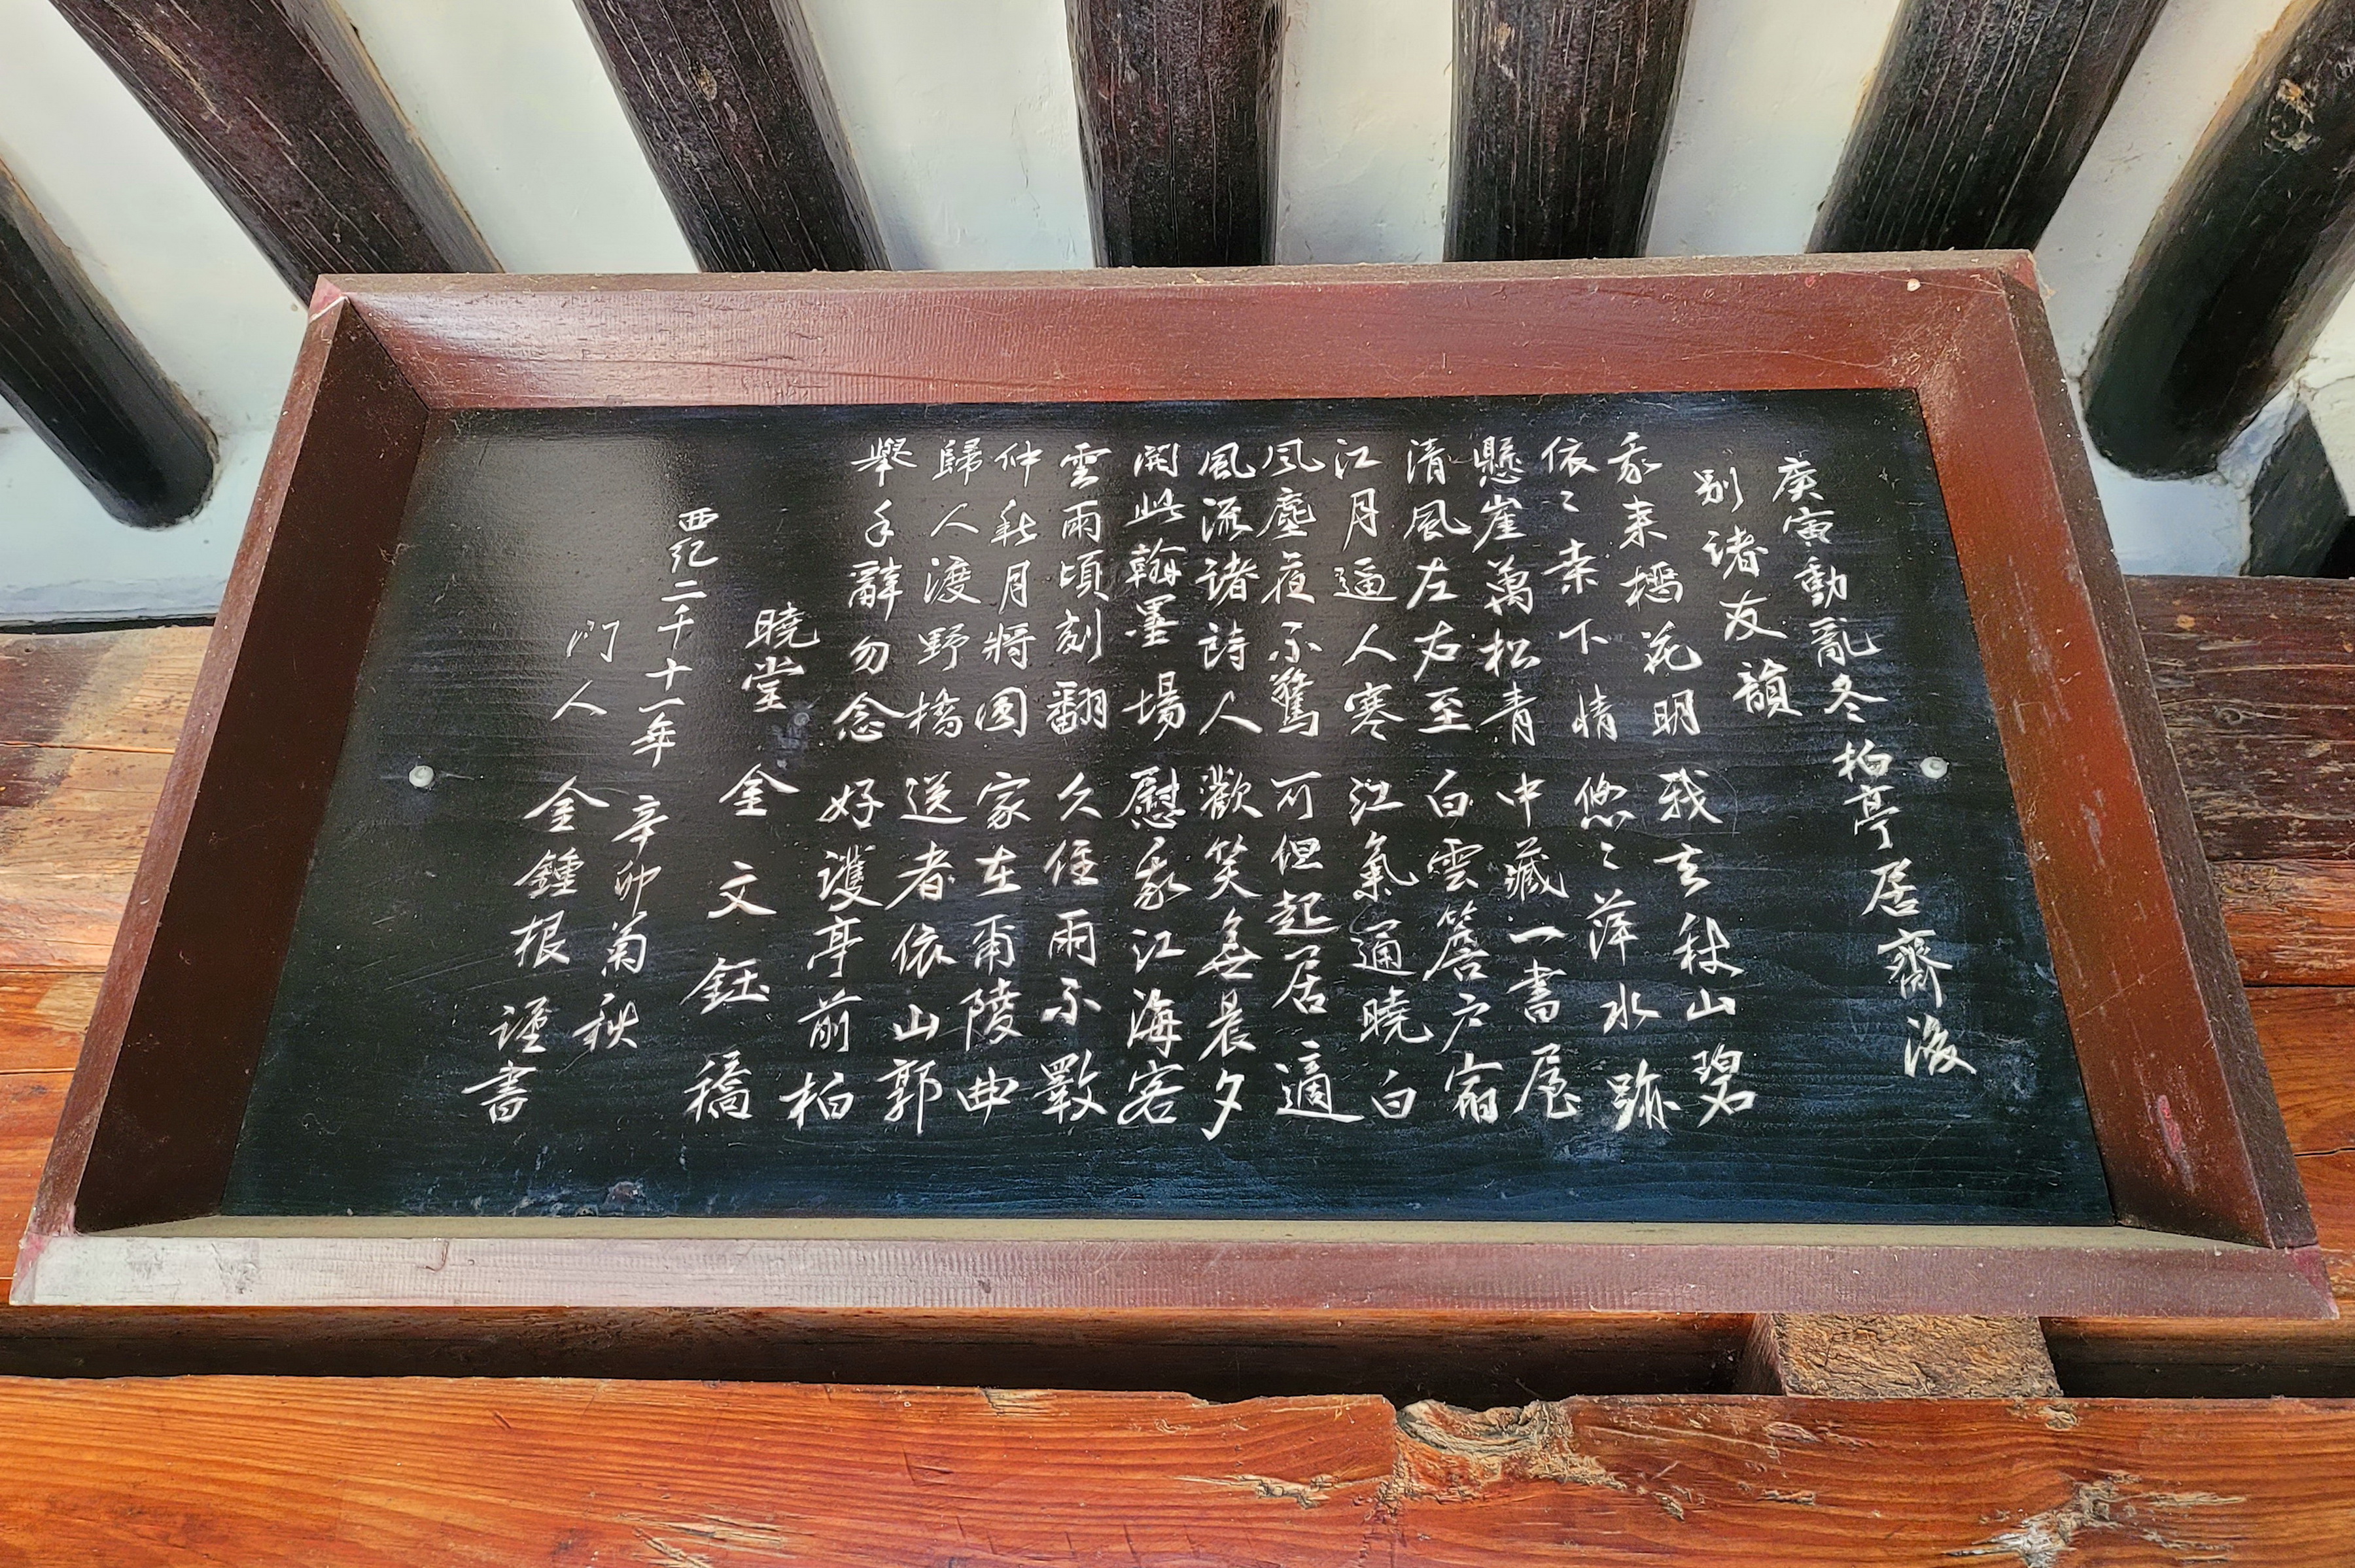 庚寅動亂冬柏亭居齋後
別諸友韻
我来梅花明我去秋山碧
依〻亭下情悠〻萍水跡
懸崖萬松青中藏一書屋
清風左右至白雲簷戶宿
江月逼人寒江氣通曉白
風塵夜不驚可但起居適
風流諸詩人歡笑無晨夕
開此翰墨場慰我江海客
雲雨頃刻翻久住雨不斁
仲秋月將圓家在甫陵曲
歸人渡野橋送者依山郭
擧手辭勿念好護亭前柏
曉堂 金文鈺 稿
西紀二千十一年 辛卯菊秋
門人 金鍾根 謹書